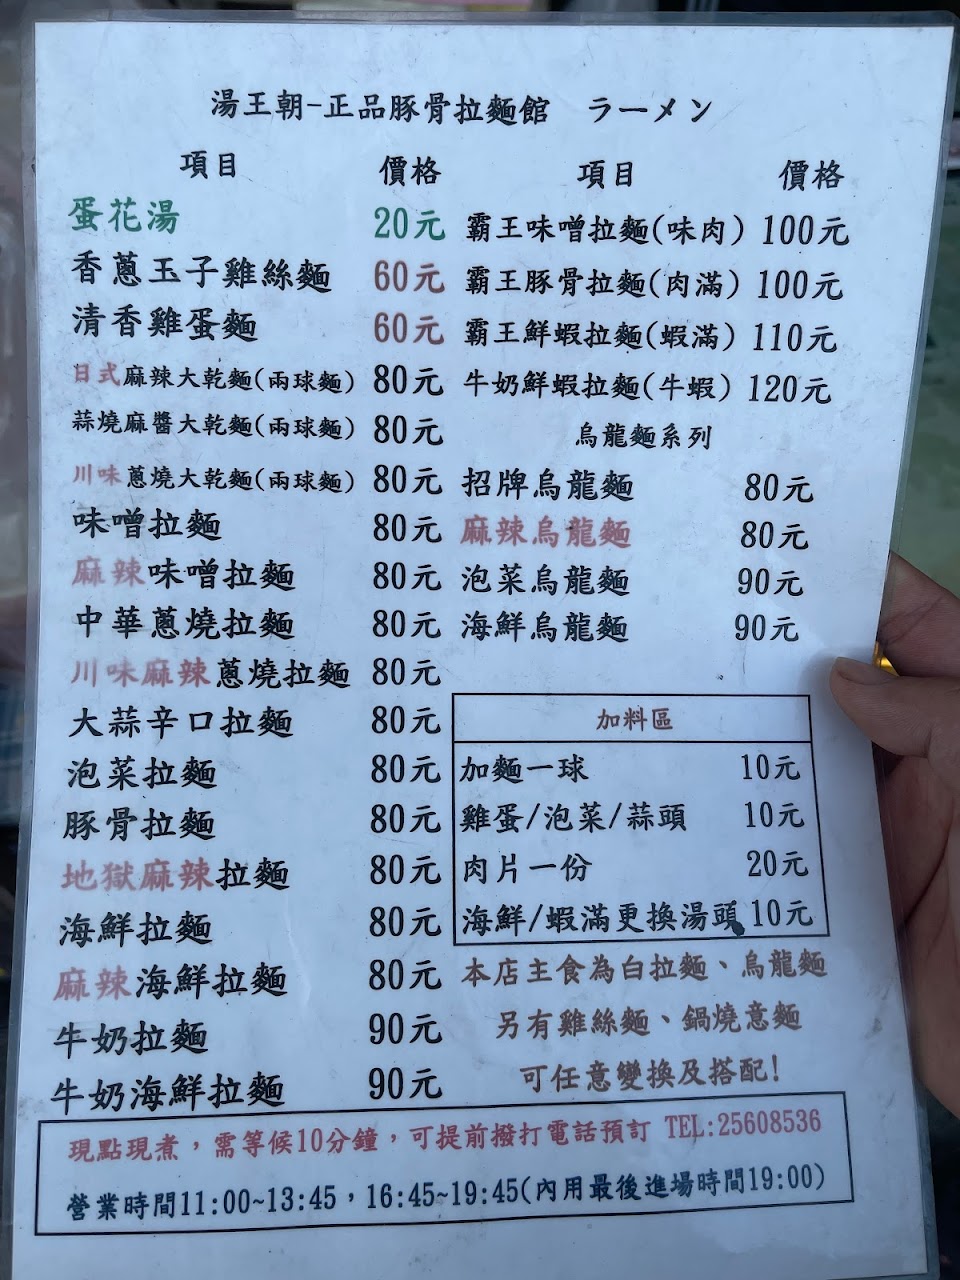 湯王朝-正品豚骨拉麵館 ラーメン
項目 價格
蛋花湯 20元
香蔥玉子雞絲麵 60元
清香雞蛋麵 60元
日式麻辣大乾麵(兩球麵) 80元
蒜燒麻醬大乾麵(兩球麵) 80元
川味蔥燒大乾麵(兩球麵) 80元
味噌拉麵 80元
麻辣味噌拉麵 80元
中華蔥燒拉麵 80元
川味麻辣蔥燒拉麵 80元
大蒜辛口拉麵 80元
泡菜拉麵 80元
豚骨拉麵 80元
地獄麻辣拉麵 80元
海鮮拉麵 80元
麻辣海鮮拉麵 80元
牛奶拉麵 90元
牛奶海鮮拉麵 90元
項目 價格
霸王味噌拉麵(味肉) 100元
霸王豚骨拉麵(肉滿) 100元
霸王鮮蝦拉麵(蝦滿) 110元
牛奶鮮蝦拉麵(牛蝦) 120元
烏龍麵系列
招牌烏龍麵 80元
麻辣烏龍麵 80元
泡菜烏龍麵 90元
海鮮烏龍麵 90元
加料區
加麵一球 10元
雞蛋/泡菜/蒜頭 10元
肉片一份 20元
海鮮/蝦滿更換湯頭 10元
本店主食為白拉麵、烏龍麵
另有雞絲麵、鍋燒意麵
可任意變換及搭配!
現點現煮，需等候10分鐘，可提前撥打電話預訂 TEL:25608536
營業時間11:00~13:45，16:45~19:45(內用最後進場時間19:00)